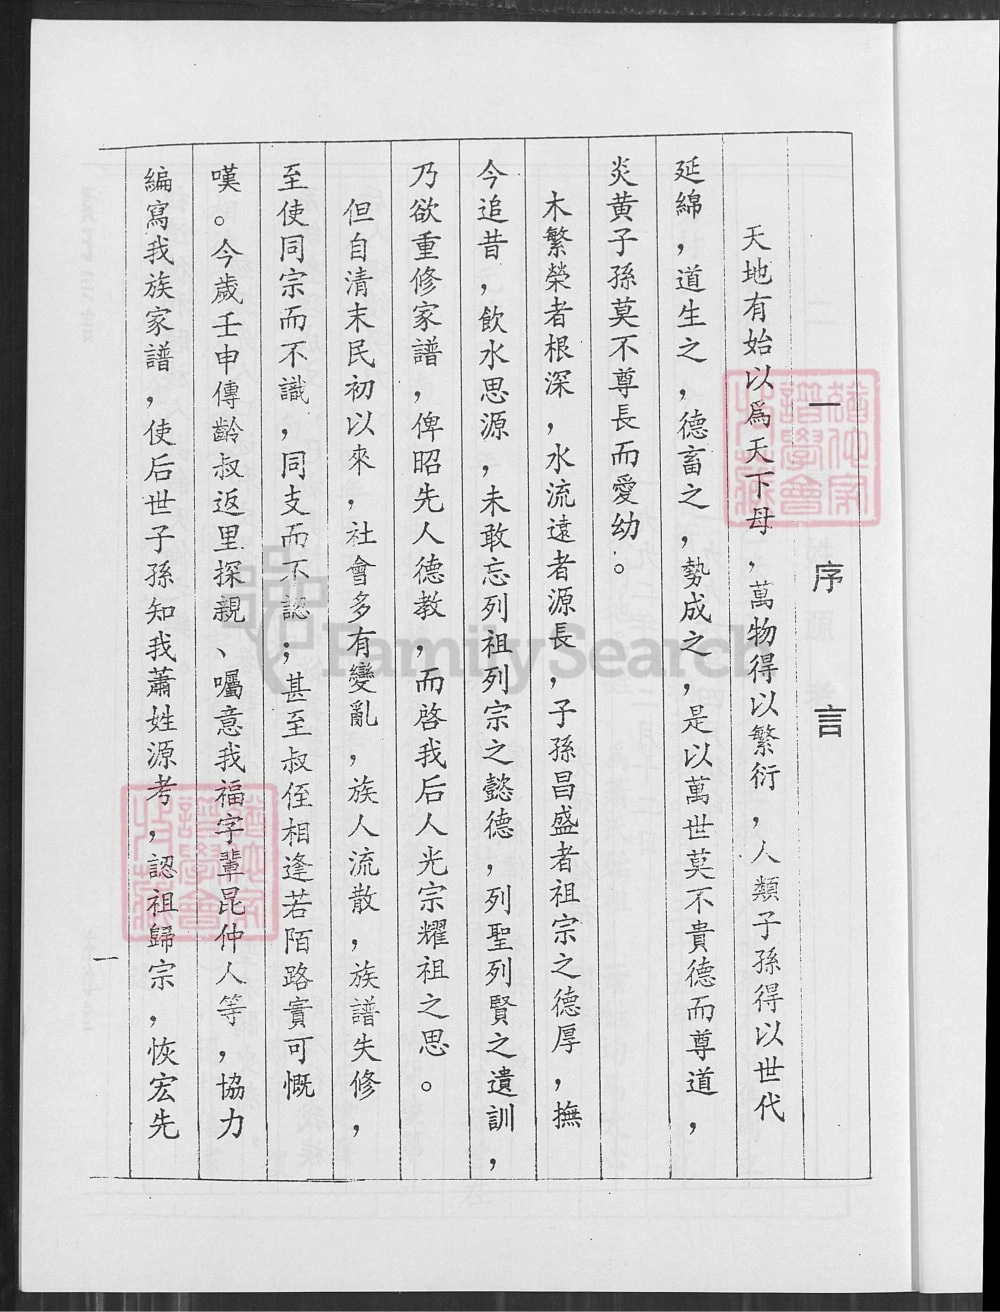 一 序 言
天地有始以爲天下母，萬物得以繁衍，人類子孫得以世代
延綿，道生之，德畜之，勢成之，是以萬世莫不貴德而尊道，
炎黄子孫莫不尊長而愛幼。
木繁榮者根深，水流遠者源長，子孫昌盛者祖宗之德厚，撫
今追昔，飲水思源，未敢忘列祖列宗之懿德，列聖列賢之遺訓，
乃欲重修家譜，俾昭先人德教，而啓我后人光宗耀祖之思。
但自清末民初以來，社會多有變亂，族人流散，族譜失修，
至使同宗而不識，同支而不認；甚至叔侄相逢若陌路實可慨
嘆。今歲壬申傳齡叔返里探親、囑意我福字輩昆仲人等，協力
編寫我族家譜，使后世子孫知我蕭姓源考，認祖歸宗，恢宏先
一
FamilySearch